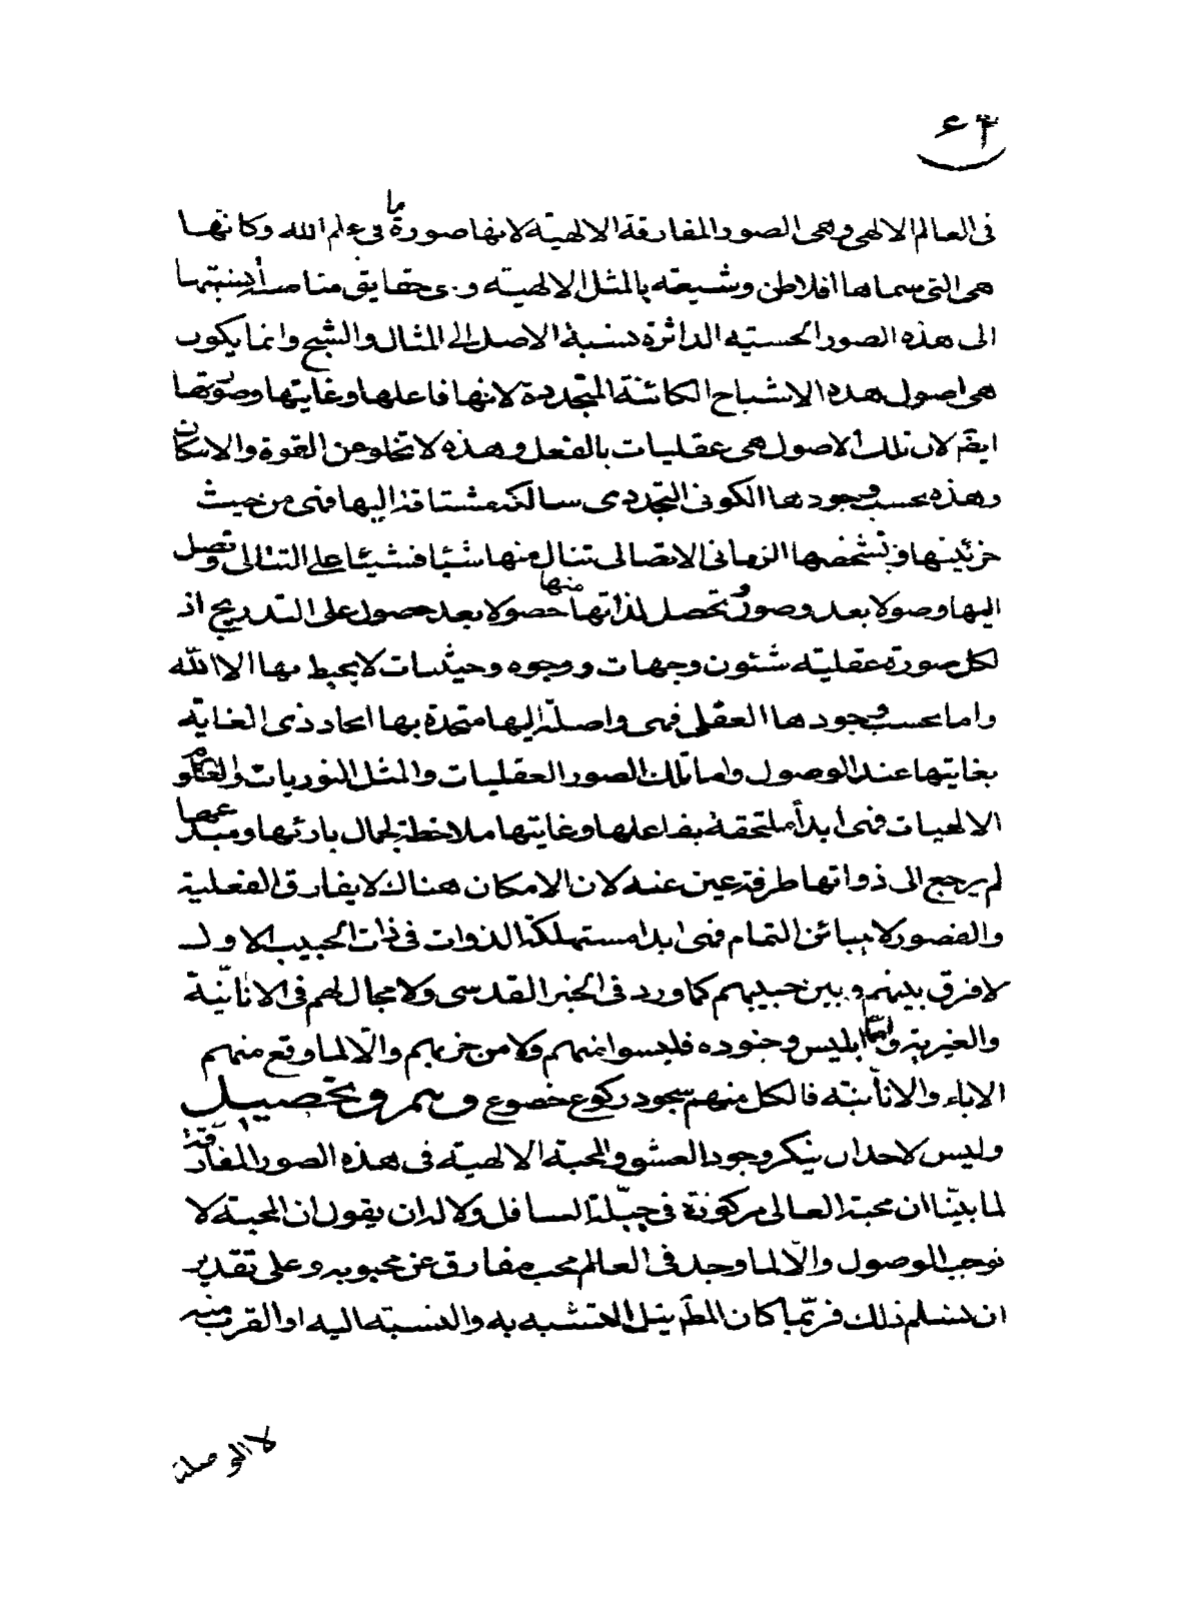 في العالم الالهي وهي الصور المفارقة الالهية لانها صورة ما في علم الله وكانها
هي التي سماها افلاطن وشيعته بالمثل الالهية وهي حقايق متاصلة نسبتها
الى هذه الصور الحسية الداثرة نسبة الاصل الى المثال والشبح وانما يكون
هي اصول هذه الاشباح الكائنة المتجددة لانها فاعلها وغايتها وصورتها
ايضم لان تلك الاصول هي عقليات بالفعل وهذه لا تخلو عن القوة والامكان
وهذه بحسب وجودها الكوني التجددي سالكة مشتاقة اليها فهي من حيث
جزئيتها وتشخصها الزماني الاتصالي تنال منها شيئا فشيئا على التتالي وتصل
اليها وصولا بعد وصول وتحصل لذاتها منها حصولا بعد حصول على التدريج اذ
لكل صورة عقلية شئون وجهات ووجوه وحيثيات لا يحيط بها الا الله
واما بحسب وجودها العقلي فهي واصلة اليها متحدة بها اتحاد ذي الغاية
بغايتها عند الوصول واما تلك الصور العقليات والمثل النوريات و
الالهيات فهي ابدا ملتحقة بفاعلها وغايتها ملاحظة لجمال بارئها ومبدعها
لم يرجع الى ذواتها طرفة عين عنه لان الامكان هناك لا يفارق الفعلية
والقصور لا يباين التمام فهي ابدا مستهلكة الذوات في ذات الحبيب الاول
لا فرق بينهم وبين حبيبهم كما ورد في الخبر القدسي ولا مجال لهم في الانانية
والغيرية واما ابليس وجنوده فليسوا منهم ولا من حزبهم والا لما وقع منهم
الاباء والانانية فالكل منهم سجود ركوع خضوع وهم وتحصيل
وليس لاحد ان ينكر وجود العشق والمحبة الالهية في هذه الصور المفارقة
لما بينا ان محبة العالي مركوزة في جبلة السافل ولا له ان يقول ان المحبة لا
توجب الوصول والا لما وجد في العالم محب مفارق عن محبوبه وعلى تقدير
ان نسلم ذلك فربما كان المطم نيل التشبه به والنسبة اليه او القرب منه
لا الوصلة